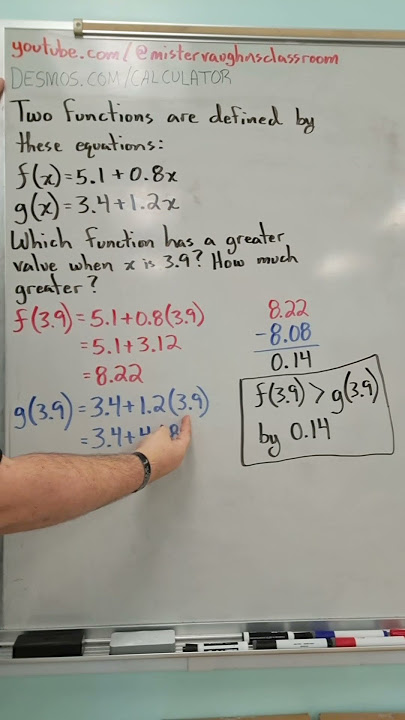 youtube.com/@mistervaughnsclassroom
DESMOS.COM/CALCULATOR
Two functions are defined by
these equations:
f(x)=5.1+0.8x
g(x)=3.4+1.2x
Which function has a greater
value when x is 3.9? How much
greater?
f(3.9)=5.1+0.8(3.9)
=5.1+3.12
=8.22
g(3.9)=3.4+1.2(3.9)
=3.4+4
8.22
-8.08
0.14
f(3.9)>g(3.9)
by 0.14